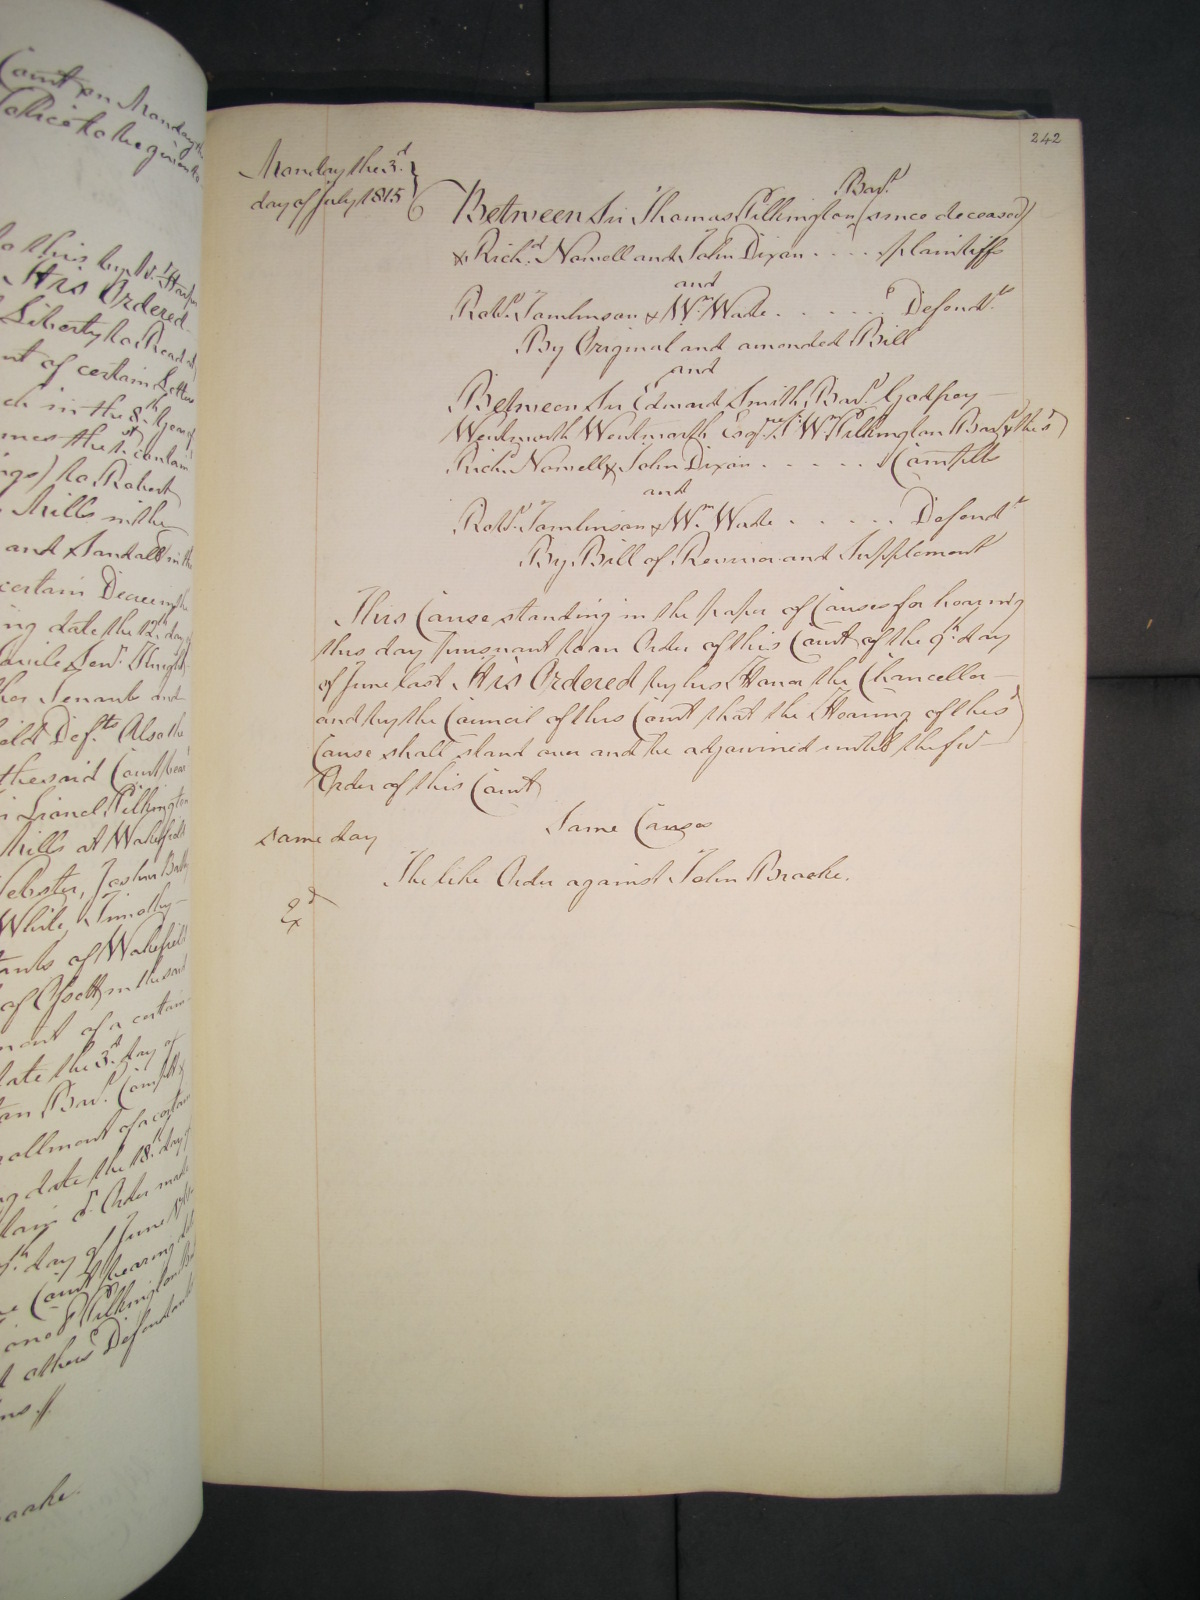 Court on Monday the
Notice to be given to
to this by Mr. Harper
It is Ordered
Liberty to Read at
nt of certain Letters
ch in the 8th Year of
mes the 1st contain
ngs) to Robert
Mills in the
and Sandall in the
certain Decree
ng date the 12th day
Savile Senr. Knight
her Tenants and
eld Defts. Also the
the said Court bear
Lionel Pilkington
Mills at Wakefield
Webster, Joshua
White, Timothy
tants of Wakefield
of Ossett in the said
ment of a certain
date the 3d. day of
Bart. Complt.
rollment of a certain
ng date the 18th day
Order made
day of June
Court bearing
Pilkington
d others Defendants
242
Monday the 3d.
day of July 1815
Bart.
Between Sir Thomas Pilkington (since deceased)
& Richd. Nowell and John Dixon .... plaintiffs
and
Robt. Tomlinson & Wm. Wade ...... Defendts.
By Original and amended Bill
and
Between Sir Edward Smith Bart. Godfrey
Wentworth Wentworth Esqre. Sr. Wm. Pilkington Bart. & the sd
Richd. Nowell & John Dixon ...... Complts
and
Robt. Tomlinson & Wm. Wade ...... Defendts
By Bill of Revivor and Supplement
This Cause standing in the paper of Causes for hearing
this day Pursuant to an Order of this Court of the 9th day
of June last It is Ordered by his Honor the Chancellor
and by the Council of this Court that the Hearing of this
Cause shall stand over and be adjourned until the fur
Order of this Court
same day
Same Causes
The like Order against John Brooke.
Exd